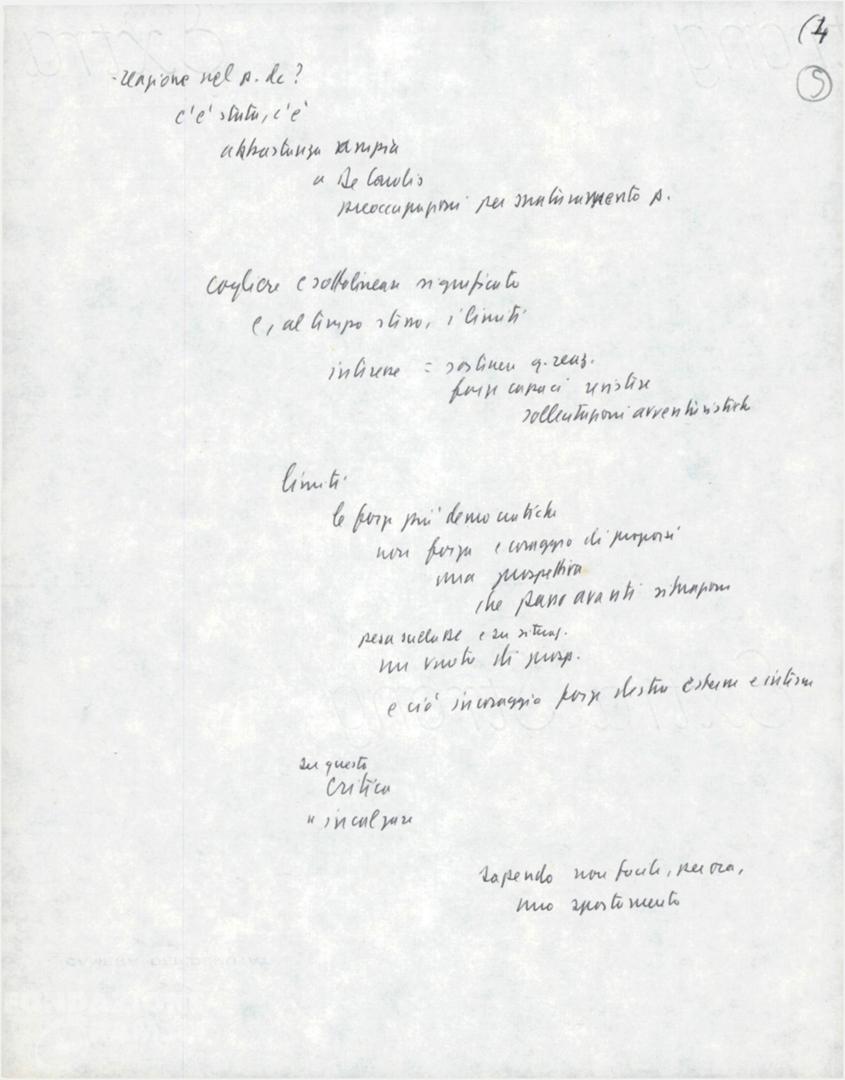 (4
5
- reazione nel p. dc?
c'è stata, c'è
abbastanza ampia
" De Carolis
preoccupazioni per snaturamento p.
cogliere e sottolineare significato
e, al tempo stesso, i limiti
interesse = sostenere q. reaz.
forze capaci resistere
sollecitazioni avventuristiche
limiti
le forze più democratiche
non forza e coraggio di proporsi
una prospettiva
che porti avanti situazione
pesa sulla DC e su situaz.
un vuoto di prosp.
e ciò incoraggia forze destra esterne e interne
su questo
critica
" incalzare
sapendo non facile, per ora,
uno spostamento